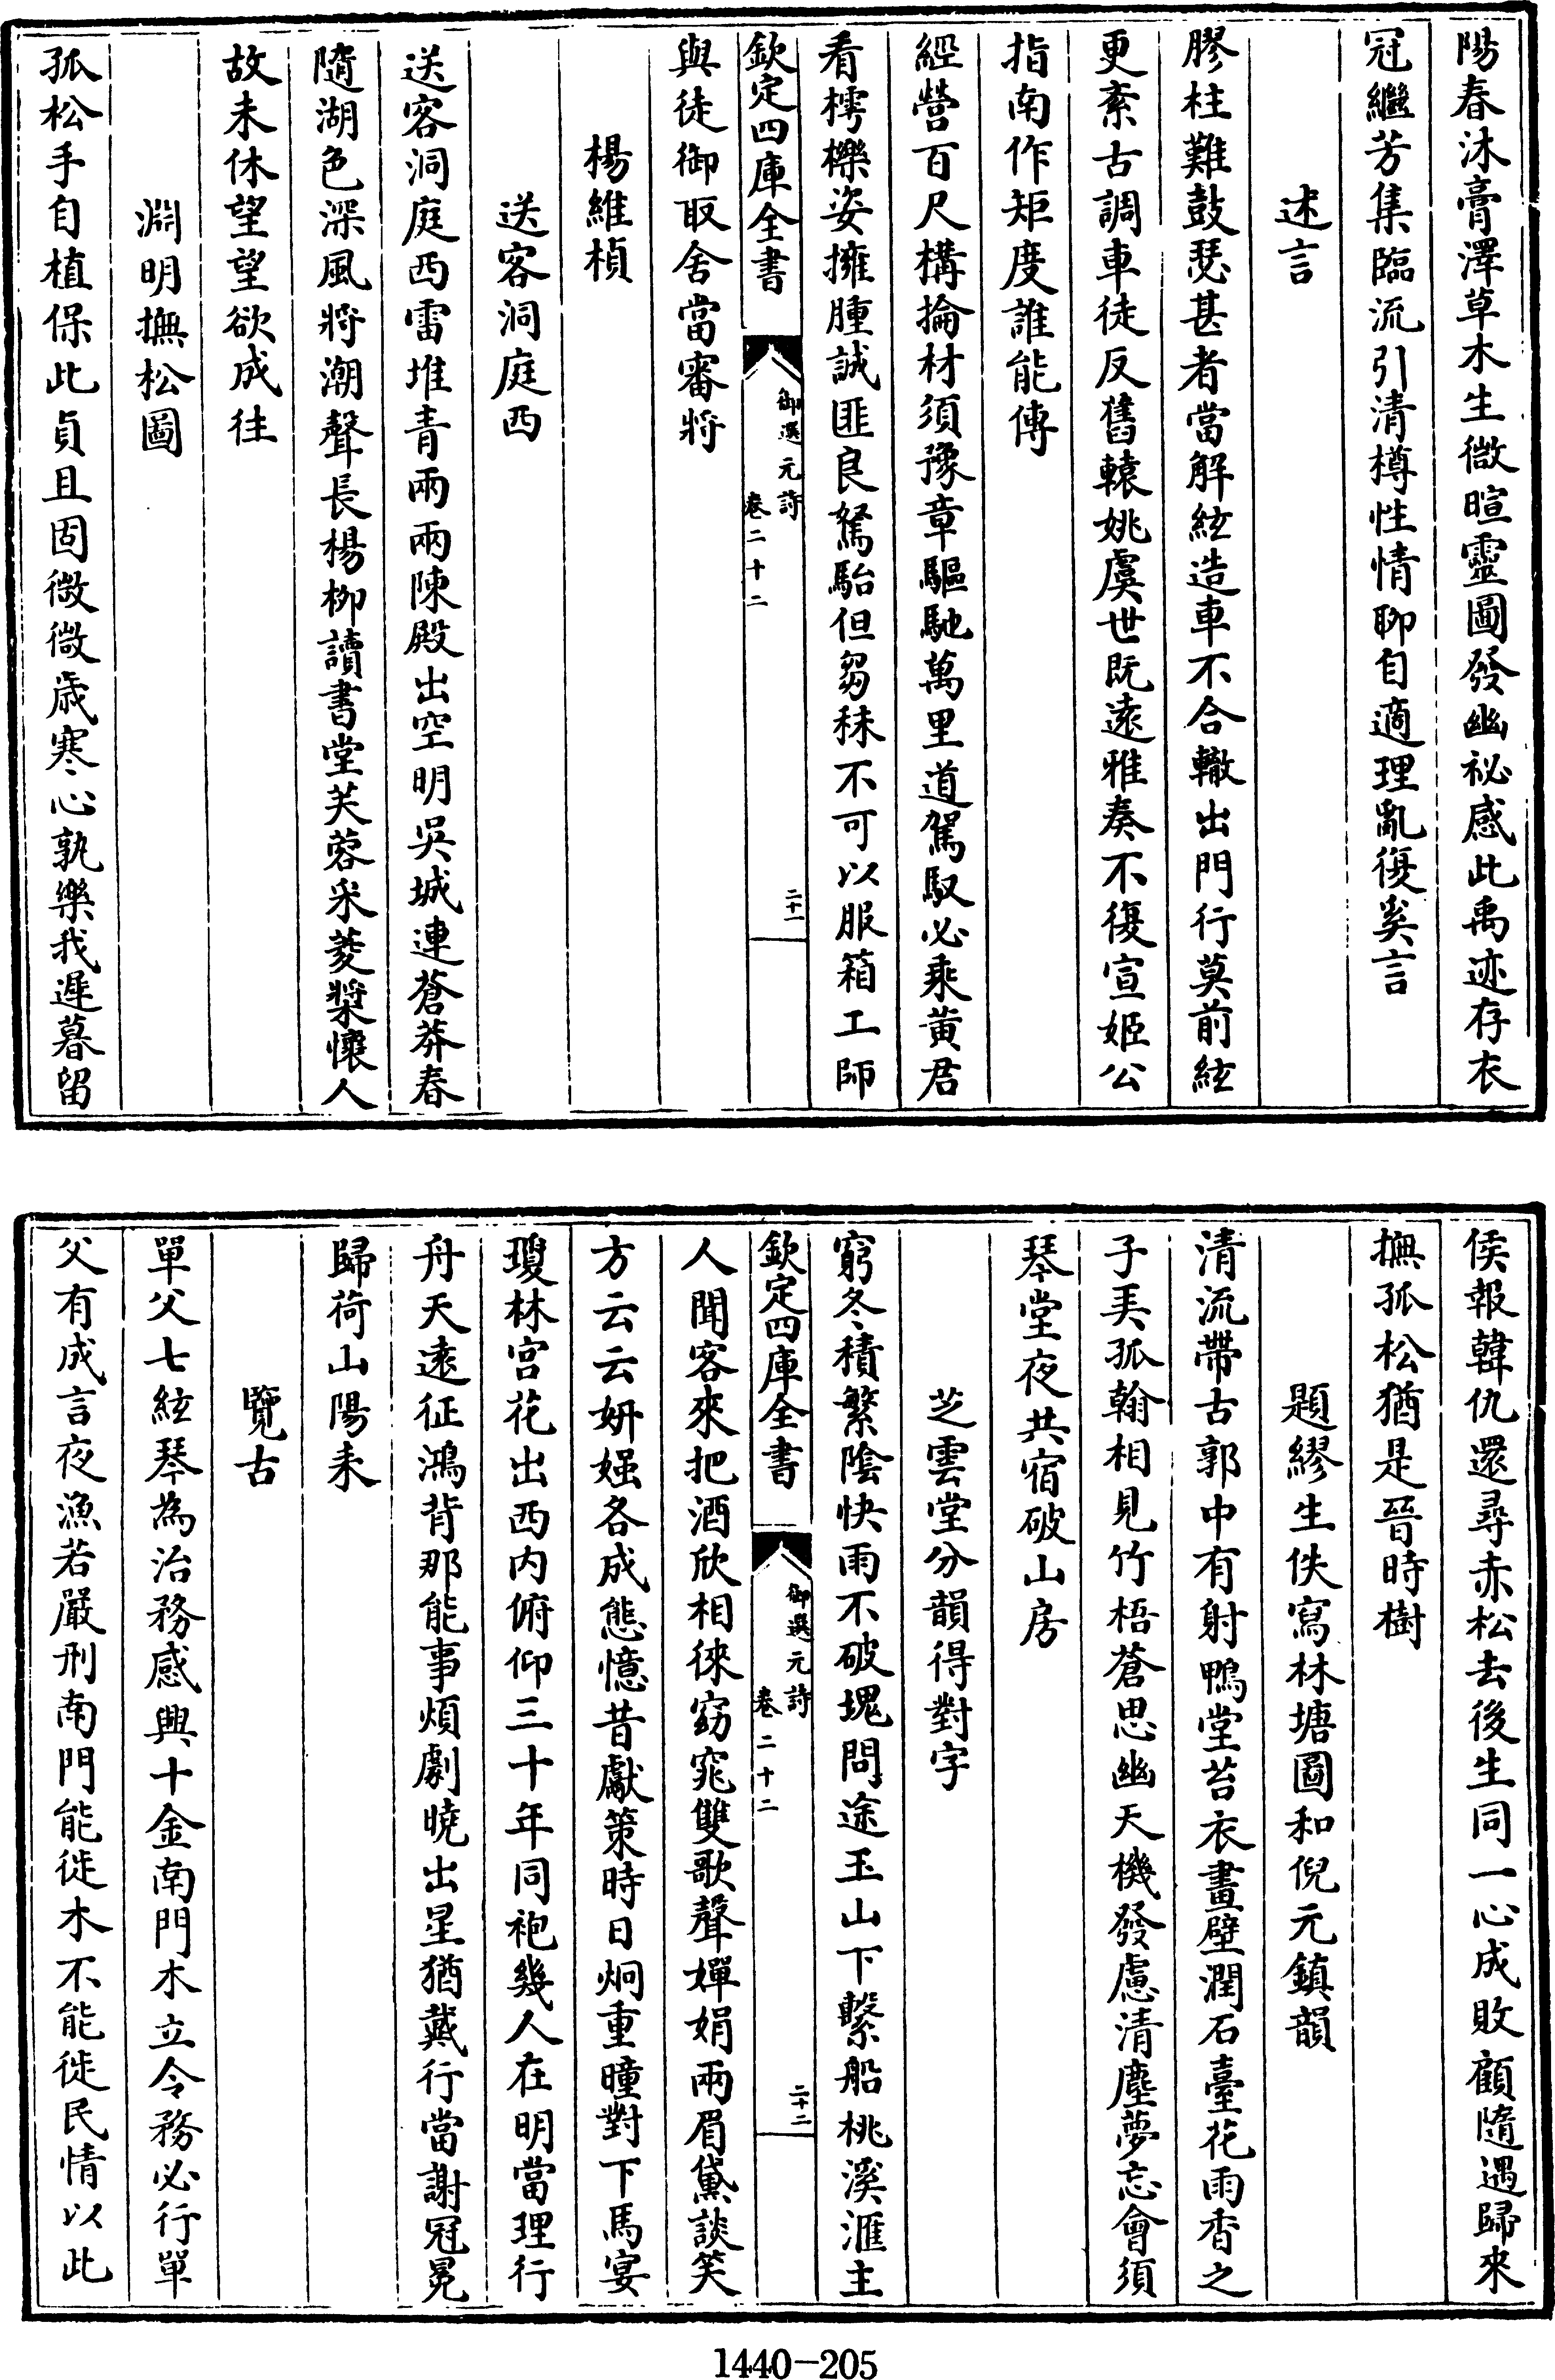 陽春沐膏澤草木生微暄靈圖發幽祕感此禹迹存衣
冠繼芳集臨流引清樽性情聊自適理亂復奚言
述言
膠柱難鼓瑟甚者當解絃造車不合轍出門行莫前絃
更紊古調車徒反舊轅姚虞世既遠雅奏不復宣姬公
指南作矩度誰能傳
經營百尺構掄材須豫章驅馳萬里道駕馭必乘黃君
看樗櫟姿擁腫誠匪良駑駘但芻秣不可以服箱工師
欽定四庫全書
御選元詩
卷二十二
二十一
與徒御取舍當審將
楊維楨
送客洞庭西
送客洞庭西雷堆青兩兩陳殿出空明吳城連蒼莽春
隨湖色深風將潮聲長楊柳讀書堂芙蓉采菱槳懷人
故未休望望欲成往
淵明撫松圖
孤松手自植保此貞且固微微歲寒心孰樂我遲暮留
侯報韓仇還尋赤松去後生同一心成敗顧隨遇歸來
撫孤松猶是晉時樹
題繆生佚寫林塘圖和倪元鎮韻
清流帶古郭中有射鴨堂苔衣畫壁潤石臺花雨香之
子美孤翰相見竹梧蒼思幽天機發慮清塵夢忘會須
琴堂夜共宿破山房
芝雲堂分韻得對字
窮冬積繁陰快雨不破塊問途玉山下繫船桃溪滙主
欽定四庫全書
御選元詩
卷二十二
二十二
人聞客來把酒欣相徠窈窕雙歌聲嬋娟兩眉黛談笑
方云云妍媸各成態憶昔獻策時日炯重曈對下馬宴
瓊林宮花出西內俯仰三十年同袍幾人在明當理行
舟天遠征鴻背那能事煩劇曉出星猶戴行當謝冠冕
歸荷山陽耒
覽古
單父七絃琴為治務感興十金南門木立令務必行單
父有成言夜漁若嚴刑南門能徙木不能徙民情以此
1440-205